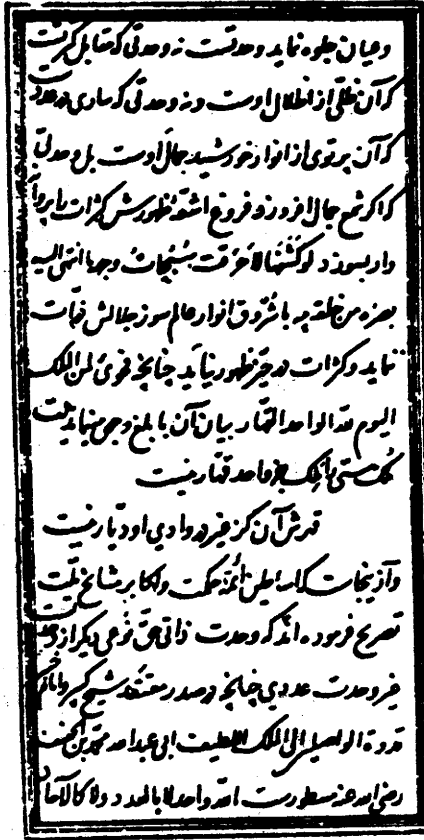 و عیان جلوه نماید وحدتست نه وحدتی که مقابل کثرت
که آن ظلی از اظلال اوست و نه وحدتی که ساری در عدد
که آن پرتوی از انوار خورشید جمال اوست بل وحدتی
که اگر شمع جمال افروزد فروغ اشعّه ظهورش کثرات را پروانه
وار بسوزد لو کشفها لاحرقت سُبُحاتُ وجهه ما انتهی الیه
بصره من خلقه چه با شروق انوار عالم سوز جلالش
نماید و کثرات در حیّز ظهور نیاید چنانچه فحوی لمن الملک
الیوم لله الواحد القهار بیان آن بابلغ وجهی مینماید
ملک هستی جز واحد قهار نیست
آن کز غیر در وادی او دیّار نیست
و از ینجاست که اساطین أئمّه حکمت و اکابر مشایخ
تصریح فرموده‌اند که وحدت ذاتی حق نوعی دیگر از
غیر وحدت عددی چنانچه در صدر معتقد شیخ کبیر
قدوة الواصلین الی الملک اللطیف ابی عبدالله محمد بن خفیف
رضی الله عنه مسطورست الله واحد لا بالعدد ولا کالآحاد